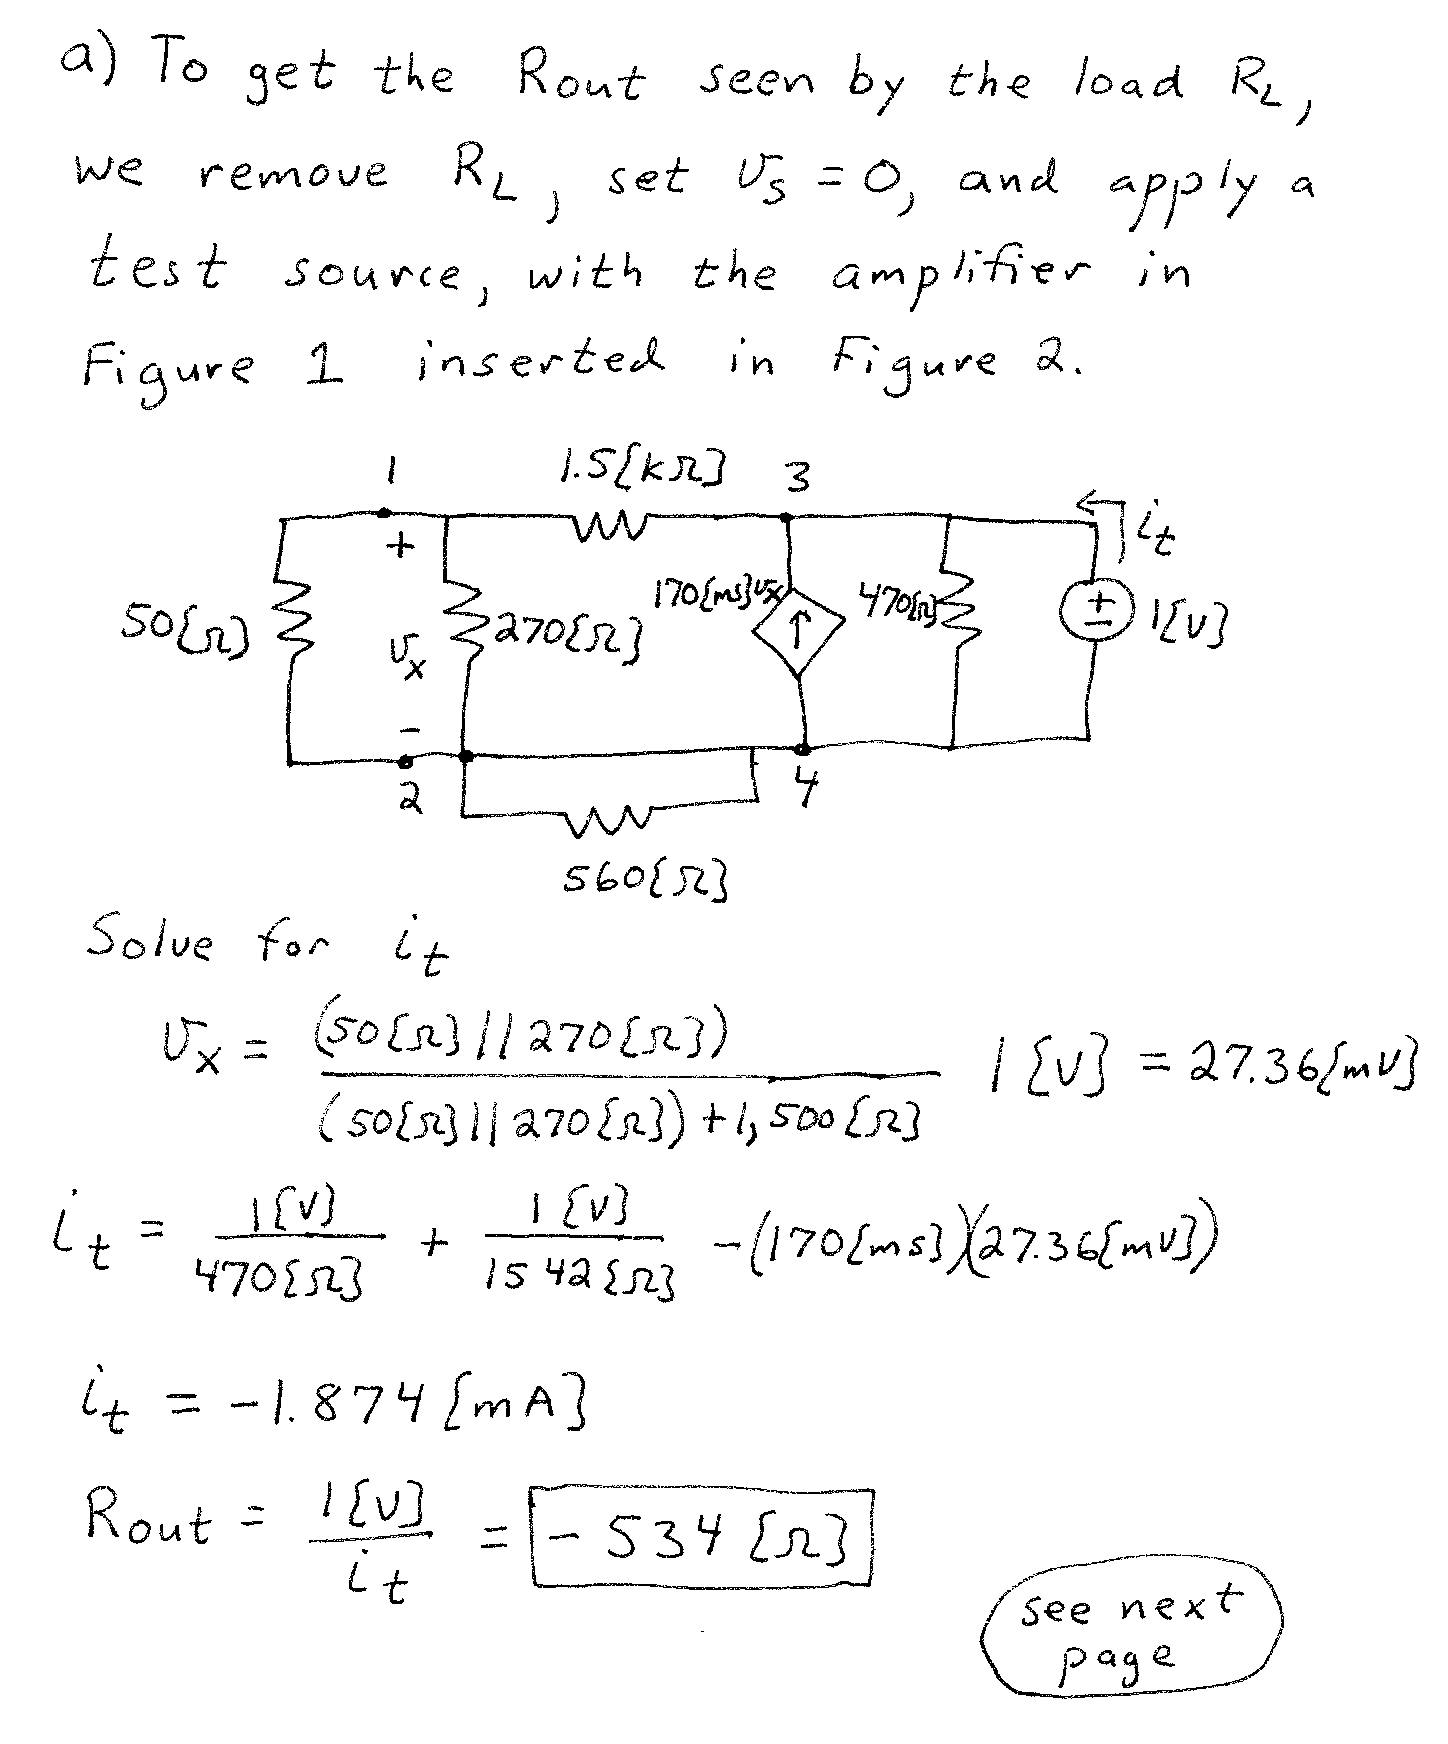 a) To get the Rout seen by the load RL,
we remove RL, set vs = 0, and apply a
test source, with the amplifier in
Figure 1 inserted in Figure 2.
1
1.5[kΩ]
3
it
+
50[Ω]
vx
270[Ω]
170[ms]vx
470[Ω]
+
-
1[V]
-
2
4
560[Ω]
Solve for it
vx = (50[Ω] || 270[Ω]) / ((50[Ω] || 270[Ω]) + 1,500[Ω]) 1[V] = 27.36[mV]
it = 1[V] / 470[Ω] + 1[V] / 1542[Ω] - (170[ms])(27.36[mV])
it = -1.874[mA]
Rout = 1[V] / it = -534[Ω]
see next
page